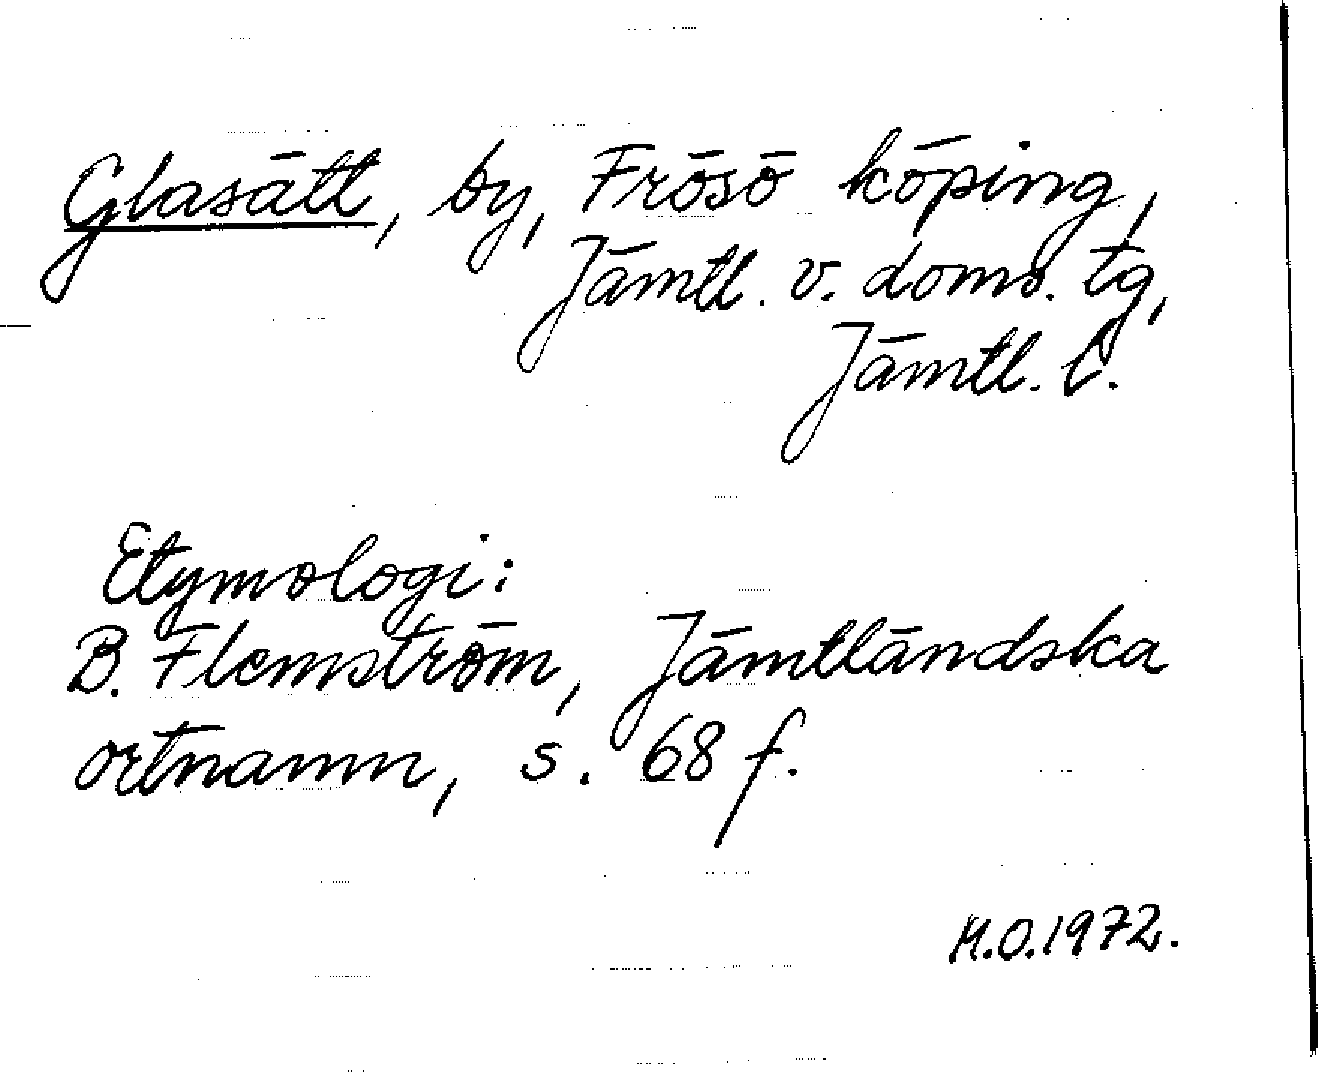 Glasätt, by, Frösö köping,
Jämtl. v. doms. tg,
Jämtl. l.
Etymologi:
B. Flemström, Jämtländska
ortnamn, s. 68 f.
M.O.1972.